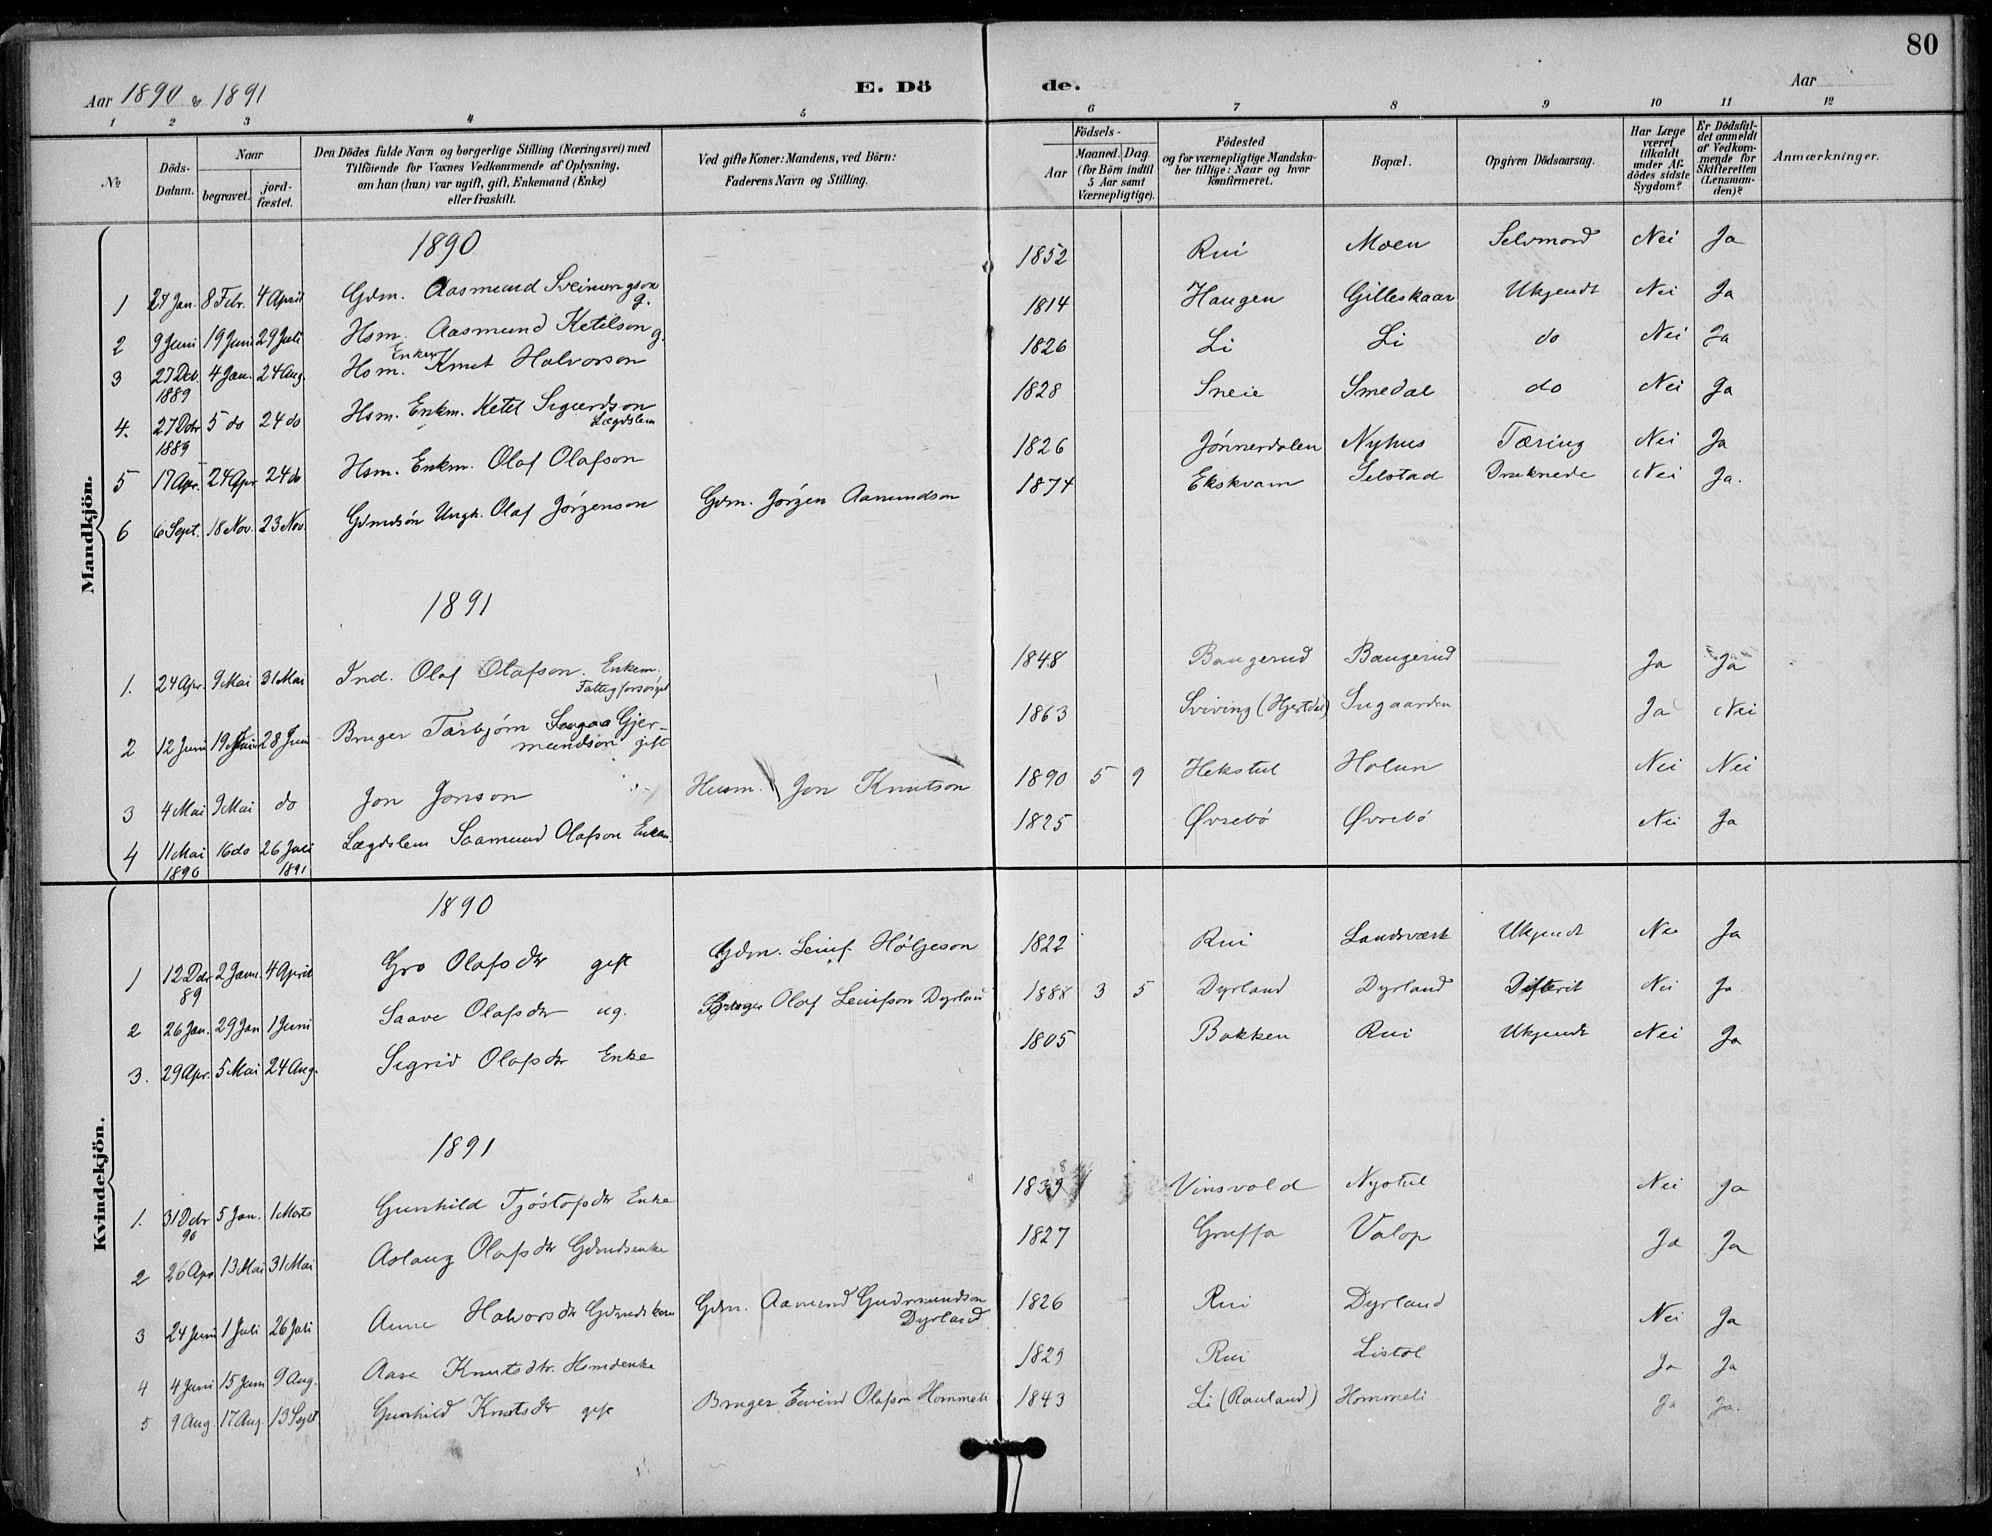 80
Aar 1890 & 1891
E. Dö de.
Aar
1 2 3 4 5 6 7 8 9 10 11 12
No
Döds-Datum.
Naar
begravet.
jord-fæstet.
Den Dödes fulde Navn og borgerlige Stilling (Næringsvei) med
Tilföiende for Voxnes Vedkommende af Oplysning,
om han (hun) var ugift, gift, Enkemand (Enke)
eller fraskilt.
Ved gifte Koner: Mandens, ved Börn:
Faderens Navn og Stilling.
Födsels-
Aar
Maaned. Dag.
(for Börn indtil
5 Aar samt
Værnepligtige).
Födested
og for værnepligtige Mandska-
ber tillige: Naar og hvor
konfirmeret.
Bopæl.
Opgiven Dödsaarsag.
Har Læge
været
tilkaldt
under Af-
dödes sidste
Sygdom?
Er Dödsfal-
det anmeldt
af Vedkom-
mende for
Skifteretten
(Lensman-
den)?
Anmærkninger.
Mandkjön.
1890
1 27 Jan. 8 Febr. 4 April Gdm. Aasmund Sveinungson g. 1852 Rui Moen Selvmord Nei Ja
2 9 Juni 19 Juni 29 Juli Hsm. Aasmund Ketelson g. 1814 Haugen Gilleskaar Ukjendt Nei Ja
3 27 Dcb. 1889 4 Jan. 24 Aug. Hsm. Enkem Knut Halvorson 1826 Li Li do Nei Ja
4. 27 Dcbr 1889 5 do 24 do Hsm. Enkm. Ketel Sigurdson Lægdslem 1828 Sneie Smedal do Nei Ja
5 17 Apr. 24 Apr 24 do Hsm. Enkm. Olaf Olafson 1826 Jönnerdalen Nyhus Tæring Nei Ja
6 6 Sept. 18 Nov. 23 Nov. Gdmdsön Ungk. Olaf Jörgenson Gdm. Jörgen Aamundson 1874 Ekskvam Selstad Druknede Nei Ja.
1891
1. 24 Apr. 9 Mai 31 Mai Ind. Olaf Olafson. Enkem. Fattigforsörget 1848 Baugerud Baugerud Ja Ja
2 12 Juni 19 Juni 28 Juni Bruger Tarbjörn Gjer-
mundson gift 1863 Sviving (Hjertdal) Sugaarden Ja Nei
3 4 Mai 9 Mai do Jon Jonson Husm. Jon Knutson 1890 5 9 Hekstul Holun Nei Nei
4 11 Mai 1890 16 do 26 Juli 1891 Lægdslem Saamund Olafson Enkem. 1825 Øvrebö Øvrebö Nei Ja
Kvindekjön.
1890
1 12 Dcbr 89 2 Janu. 4 April Gro Olafsdtr gift Gdm. Leiuf Höljeson 1822 Rui Landsværk Ukjendt Nei Ja
2 26 Jan. 29 Jan 1 Juni Saave Olafsdtr ug. Bruger Olaf Leiufson Dyrland 1888 3 5 Dyrland Dyrland Difterit Nei Ja
3. 29 Apr. 5 Mai 24 Aug. Sigrid Olafsdtr Enke 1805 Bakken Rui Ukjendt Nei Ja
1891
1. 31 Dcbr 90 5 Jan. 1 Marts Gunhild Tjöstofsdtr Enke Vinsvold Nystul Nei Ja
2 26 Apr 13 Mai 31 Mai Aslaug Olafsdtr Gdmdsenke 1827 Gruffa Valop Ja Ja
3 24 Juni 1 Juli 26 Juli Anne Halvorsdtr Gdmdskone Gdm. Aamund Gudmundson Dyrland 1826 Rui Dyrland Nei Ja
4 4 Juni 15 Juni 9 Aug. Aase Knutsdtr. Hsmdenke 1829 Rui Listol Ja Ja
5 9 Aug. 17 Aug. 13 Sept Gunhild Knutsdtr gift Bruger Eivind Olafson Hommeli 1843 Li (Rauland) Hommeli Ja Ja.